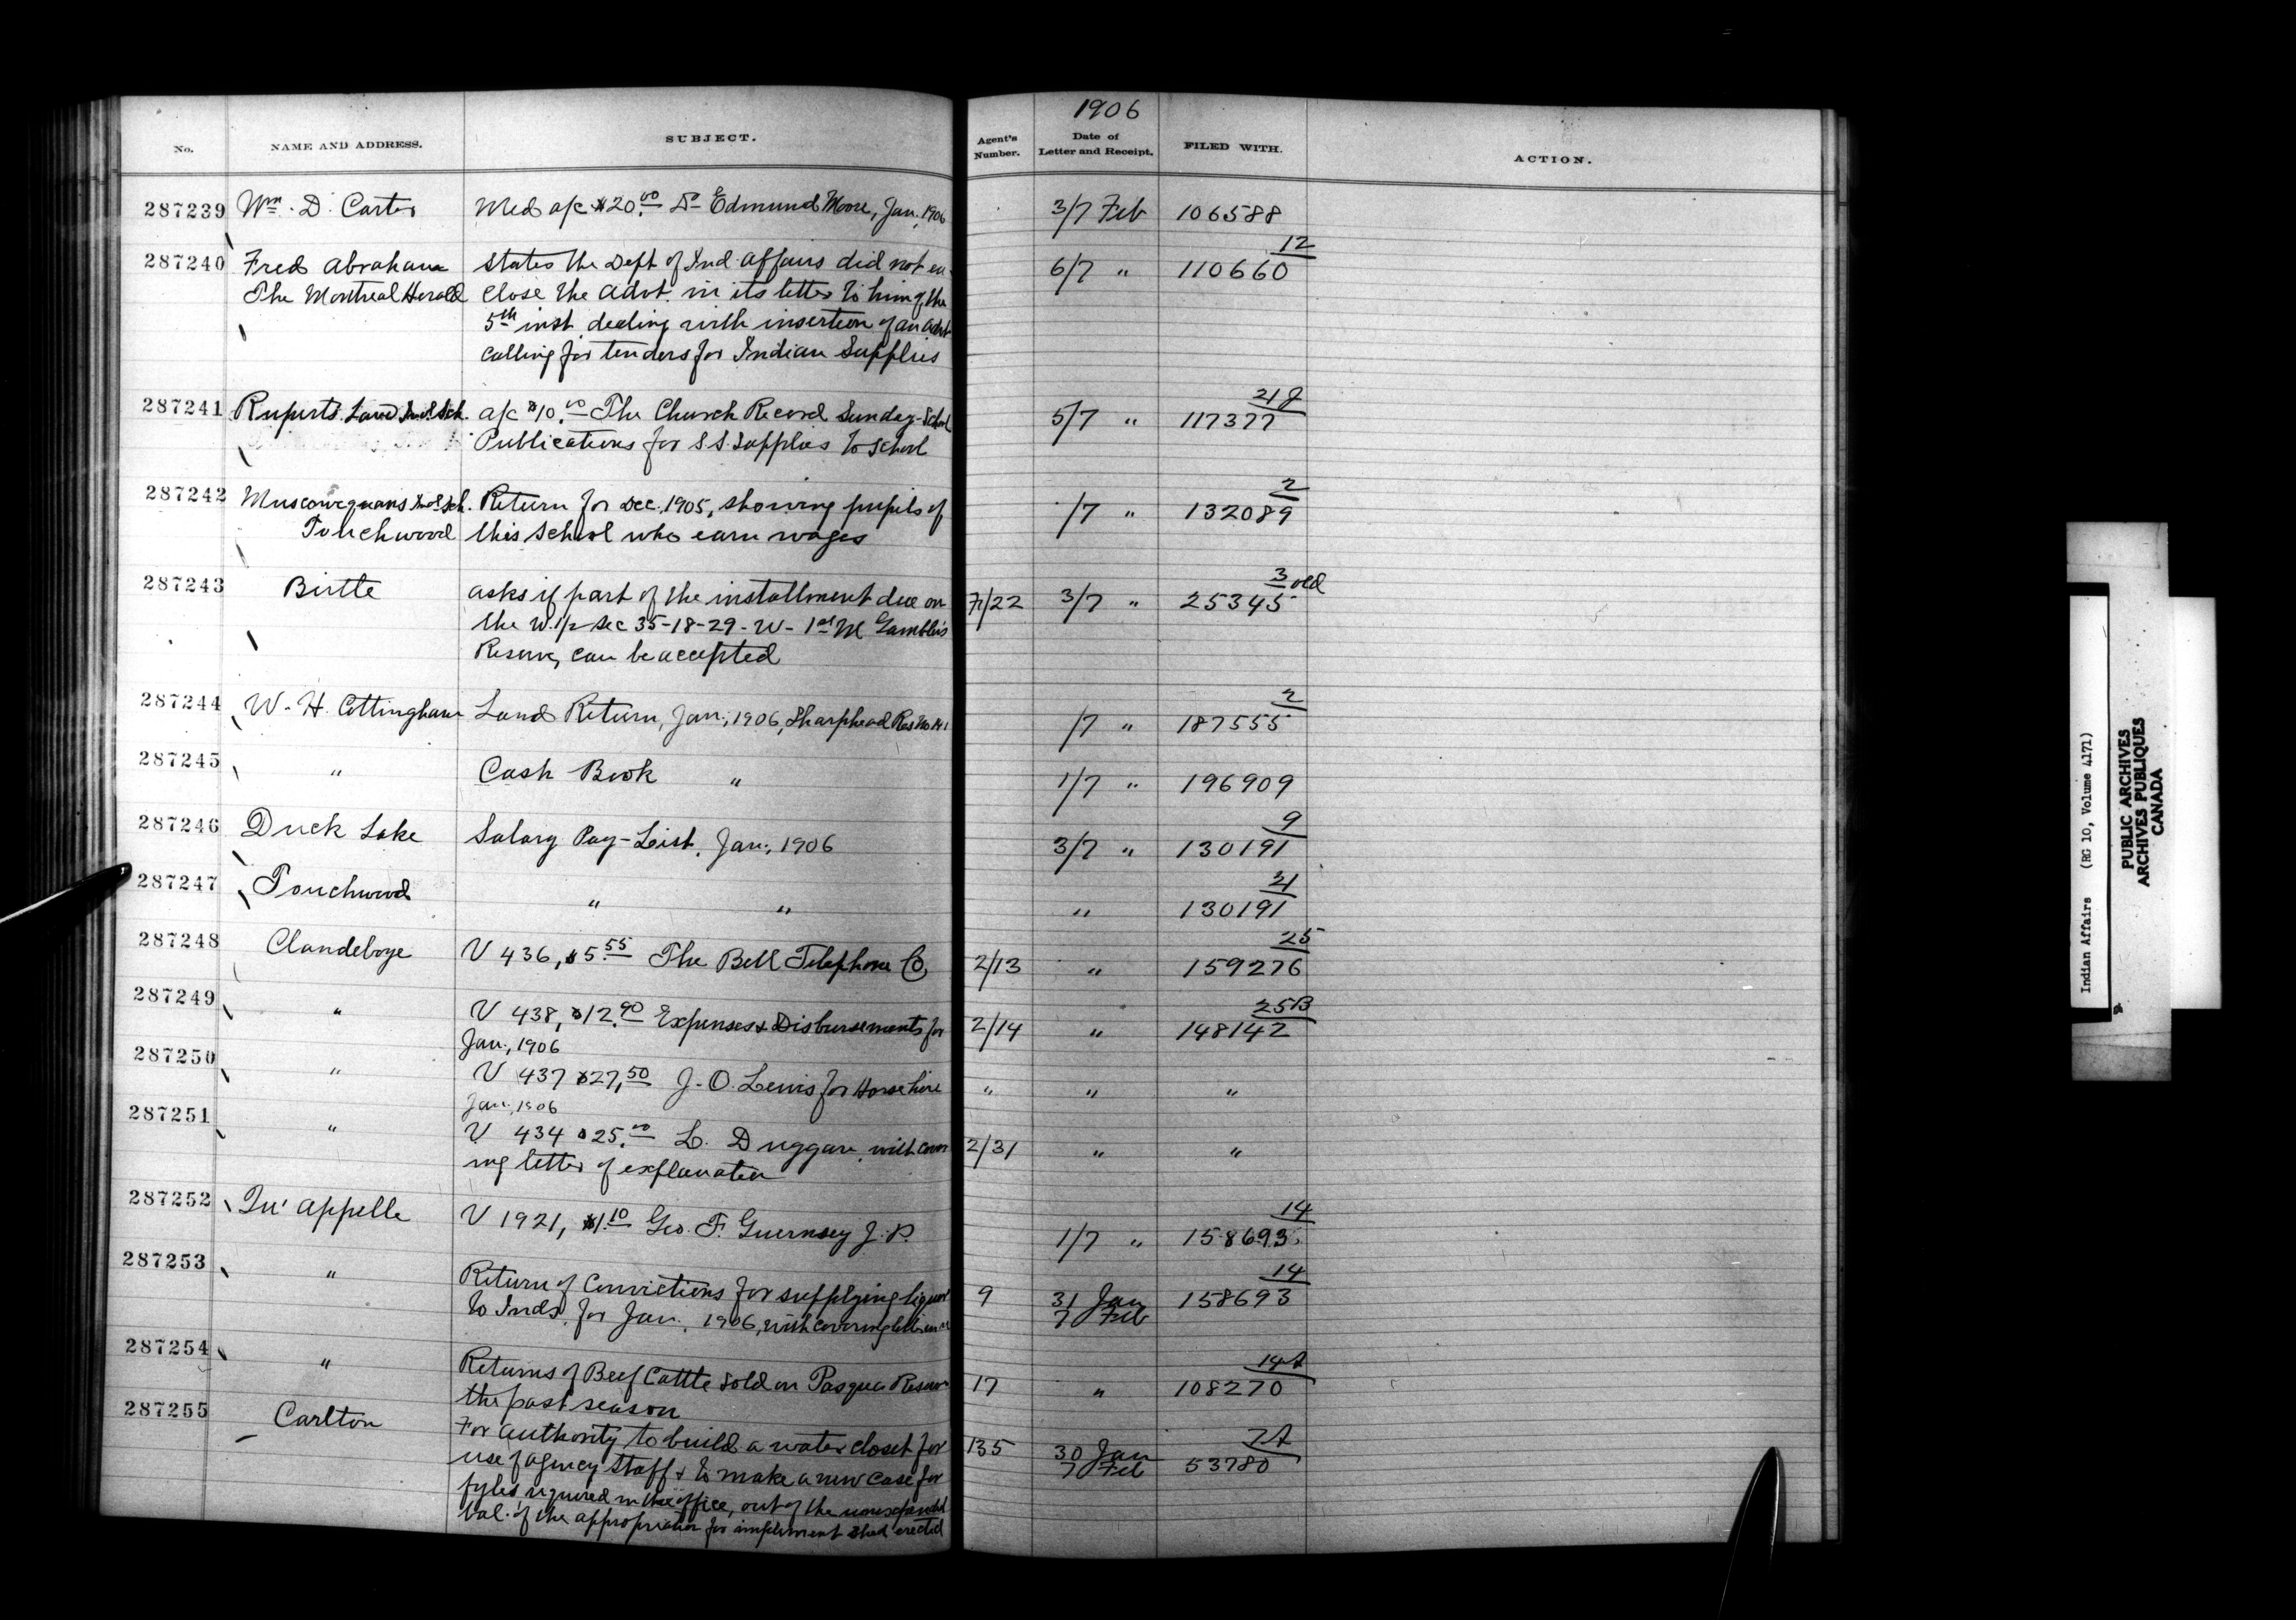 1906
No. NAME AND ADDRESS. SUBJECT. Agent's Number. Date of Letter and Receipt. FILED WITH. ACTION.
287239 Wm. D. Carter Med a/c $20.00 Dr Edmund Moore, Jan. 1906 3/7 Feb 106588
287240 Fred Abraham States the Dept of Ind. Affairs did not en- 6/7 " 110660 12
The Montreal Herald close the advt. in its letter to him of the
5th inst. dealing with insertion of an advt
calling for tenders for Indian Supplies
287241 Ruperts Land Ind. Sch. a/c $10.00 The Church Record Sunday-School 5/7 " 117377 21J
Publications for S.S. Supplies to School
287242 Muscowequans Ind. Sch. Return for Dec. 1905, showing pupils of /7 " 132089 2
Touchwood this School who earn wages
287243 Birtle asks if part of the installment due on 7/22 3/7 " 25345 3 old
the W. 1/2 Sec 35-18-29-W-1st M Gambler's
Reserve, can be accepted
287244 W. H. Cottingham Land Return, Jan., 1906, Sharphead Res No 141 /7 " 187555 2
287245 " Cash Book " 1/7 " 196909
287246 Duck Lake Salary Pay-List, Jan., 1906 3/7 " 130191 9
287247 Touchwood " " " 130191 21
287248 Clandeboye V 436, $5.55 The Bell Telephone Co. 2/13 " 159276 25
287249 " V 438, $12.90 Expenses & Disbursements for 2/14 " 148142 25B
Jan., 1906
287250 " V 437 $27.50 J. O. Lewis for Horse hire " " "
Jan., 1906
287251 " V 434 $25.00 L. Duggan, with cover 2/31 " "
ing letter of explanation
287252 Qu'Appelle V 1921, $1.10 Geo. F. Guernsey J.P. 1/7 " 158693 14
287253 " Return of Convictions for supplying liquor 9 31 Jan 158693 14
to Inds. for Jan. 1906, with covering letter 7 Feb
287254 " Returns of Beef Cattle sold on Pasqua Reserve 17 " 108270 14A
the past season
287255 Carlton For authority to build a water closet for 135 30 Jan 53780 7A
use of agency staff & to make a new case for 7 Feb
fyles required in the office, out of the unexpended
bal. of the appropriation for impliment shed erected
Indian Affairs (RG 10, Volume 4171)
PUBLIC ARCHIVES
ARCHIVES PUBLIQUES
CANADA